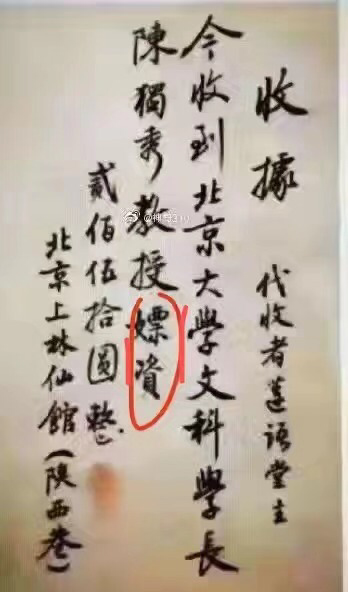 收據
代收者蓮語堂主
今收到北京大學文科學長
陳獨秀教授嫖資
貳佰伍拾圓整.
北京上林仙館(陝西巷)